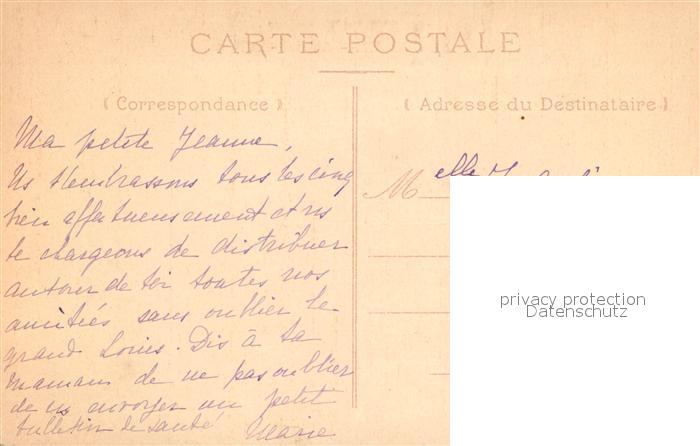 CARTE POSTALE
( Correspondance )
( Adresse du Destinataire )
Ma petite Jeanne,
Ns t'embrassons tous les cinq
bien affectueusement et ns
te chargeons de distribuer
autour de toi toutes nos
amitiés sans oublier le
grand Louis. Dis à ta
maman de ne pas oublier
de ns envoyer un petit
bulletin de santé
Marie
Melle
privacy protection
Datenschutz